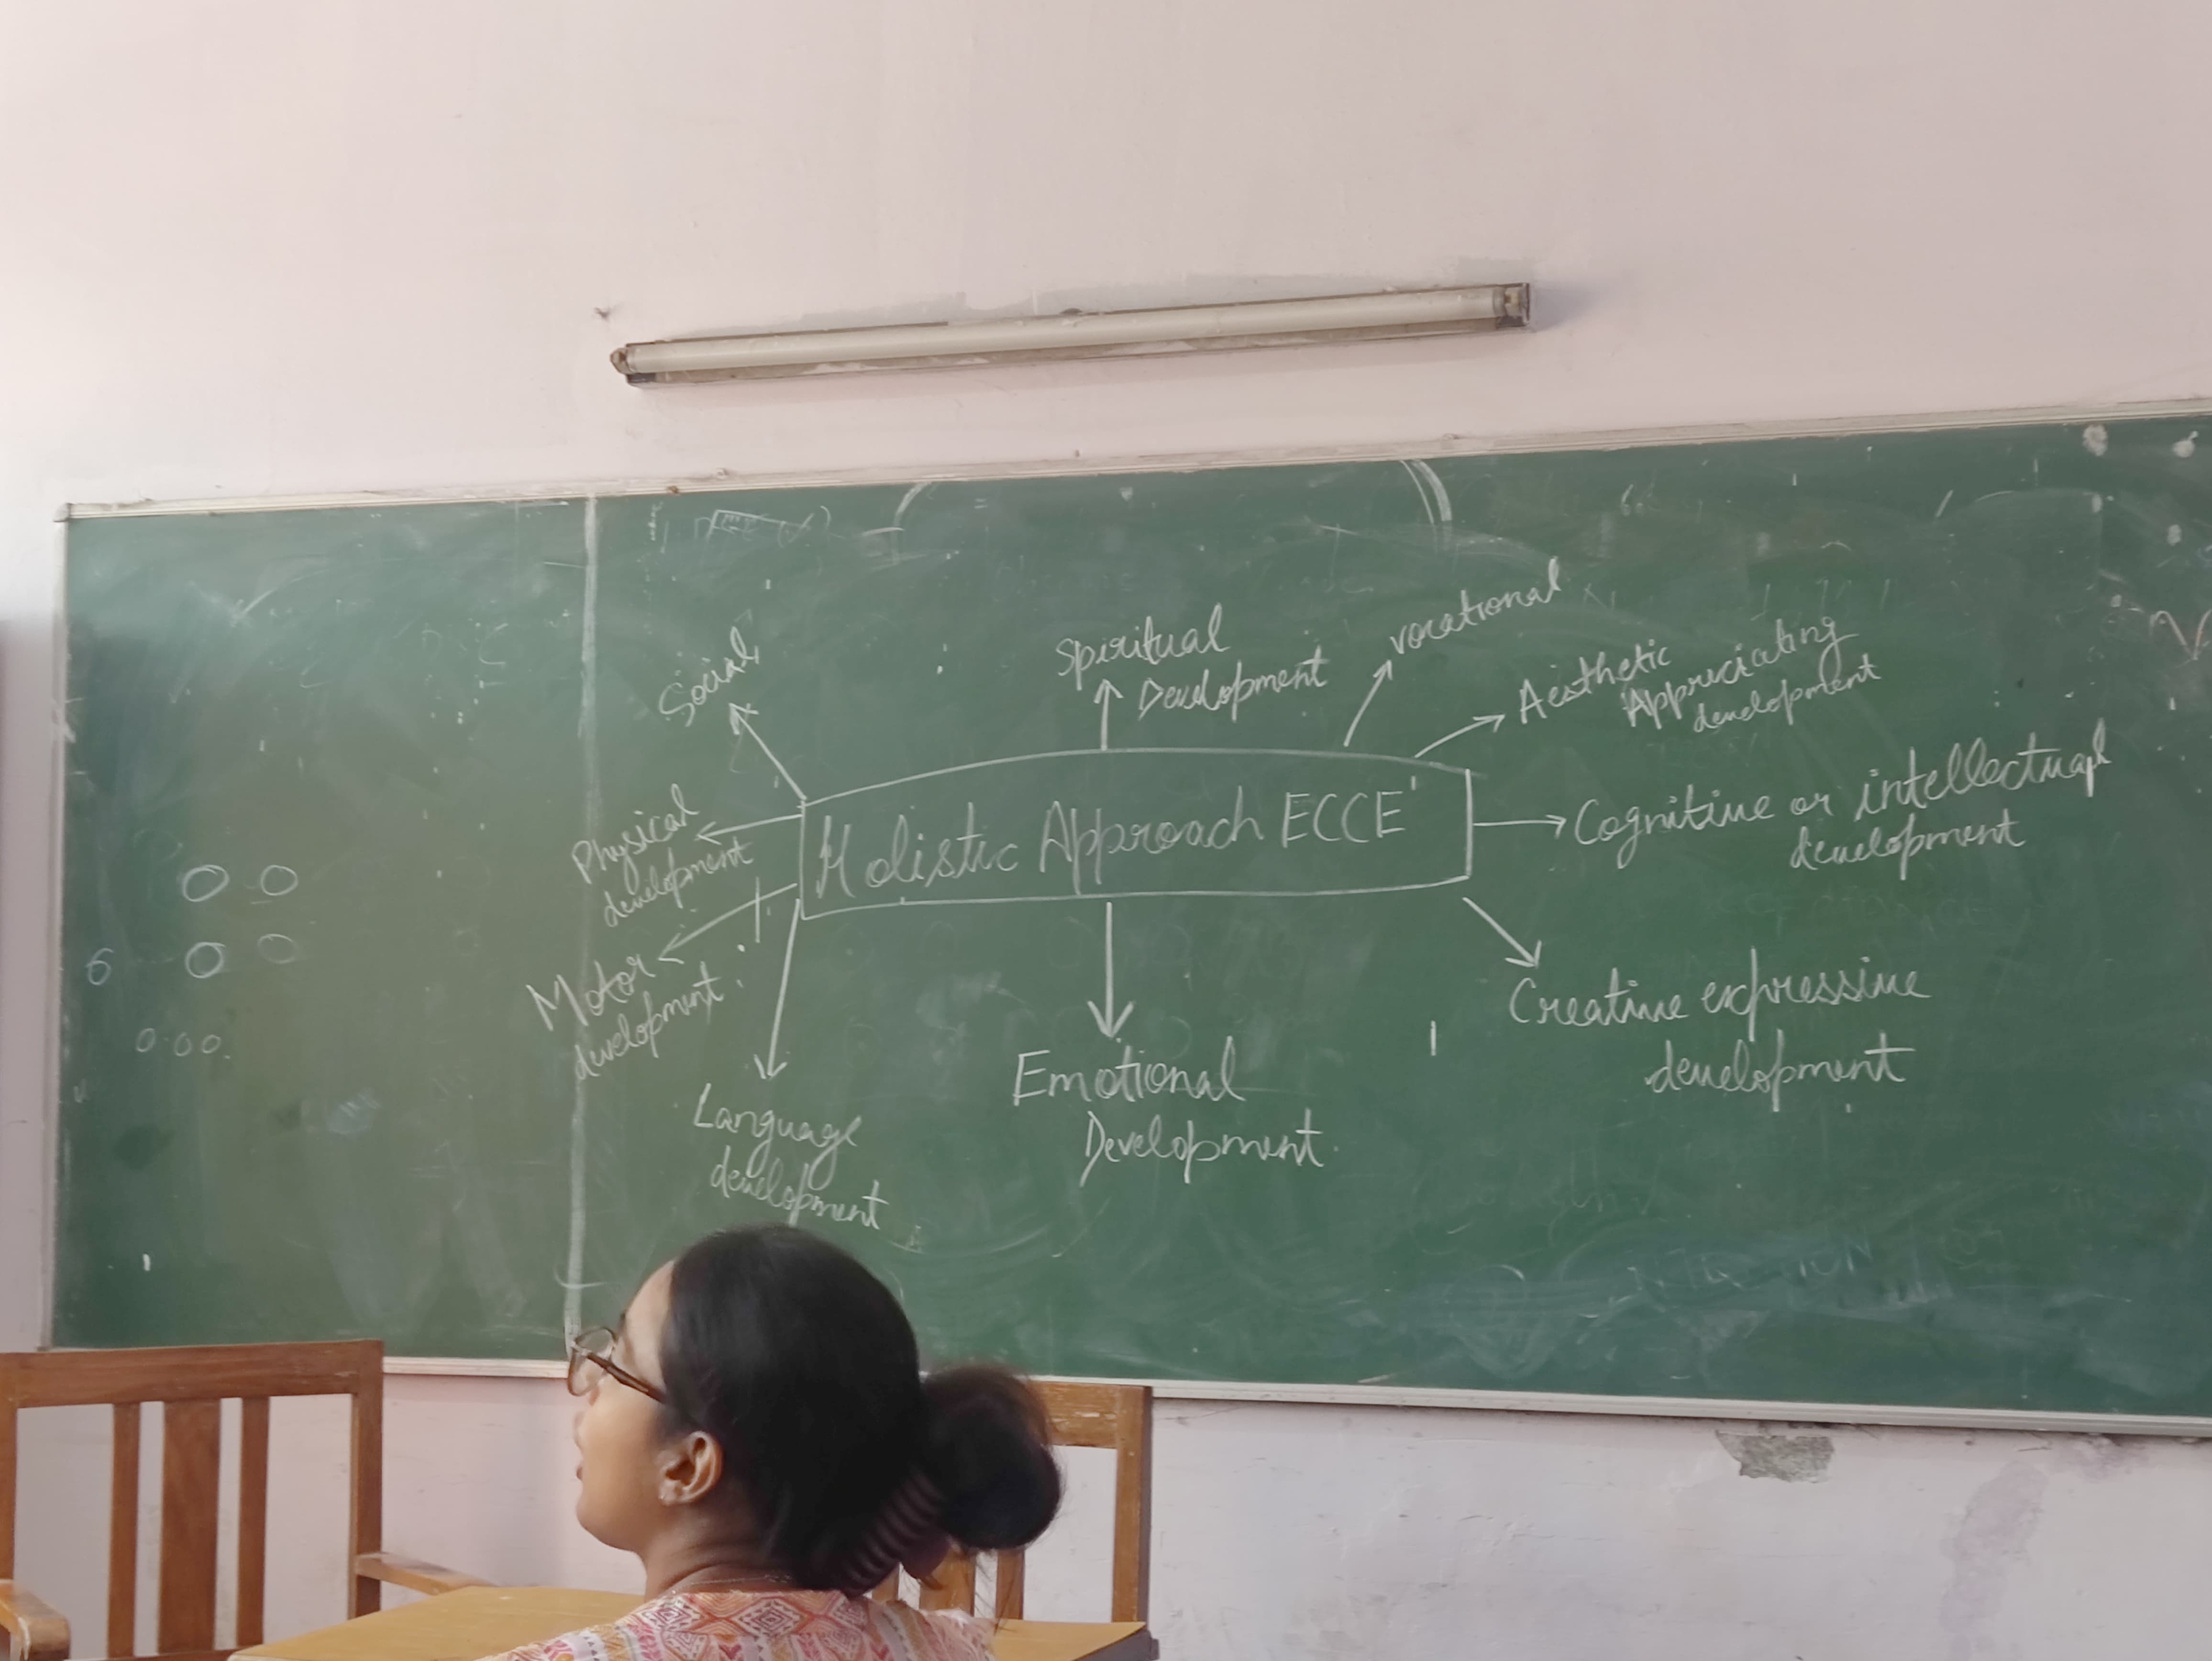 Social
Spiritual
Development
vocational
Aesthetic
Appreciating
development
Physical
development
Holistic Approach ECCE
Cognitive or intellectual
development
Motor
development
Creative expressive
development
Language
development
Emotional
Development.
6